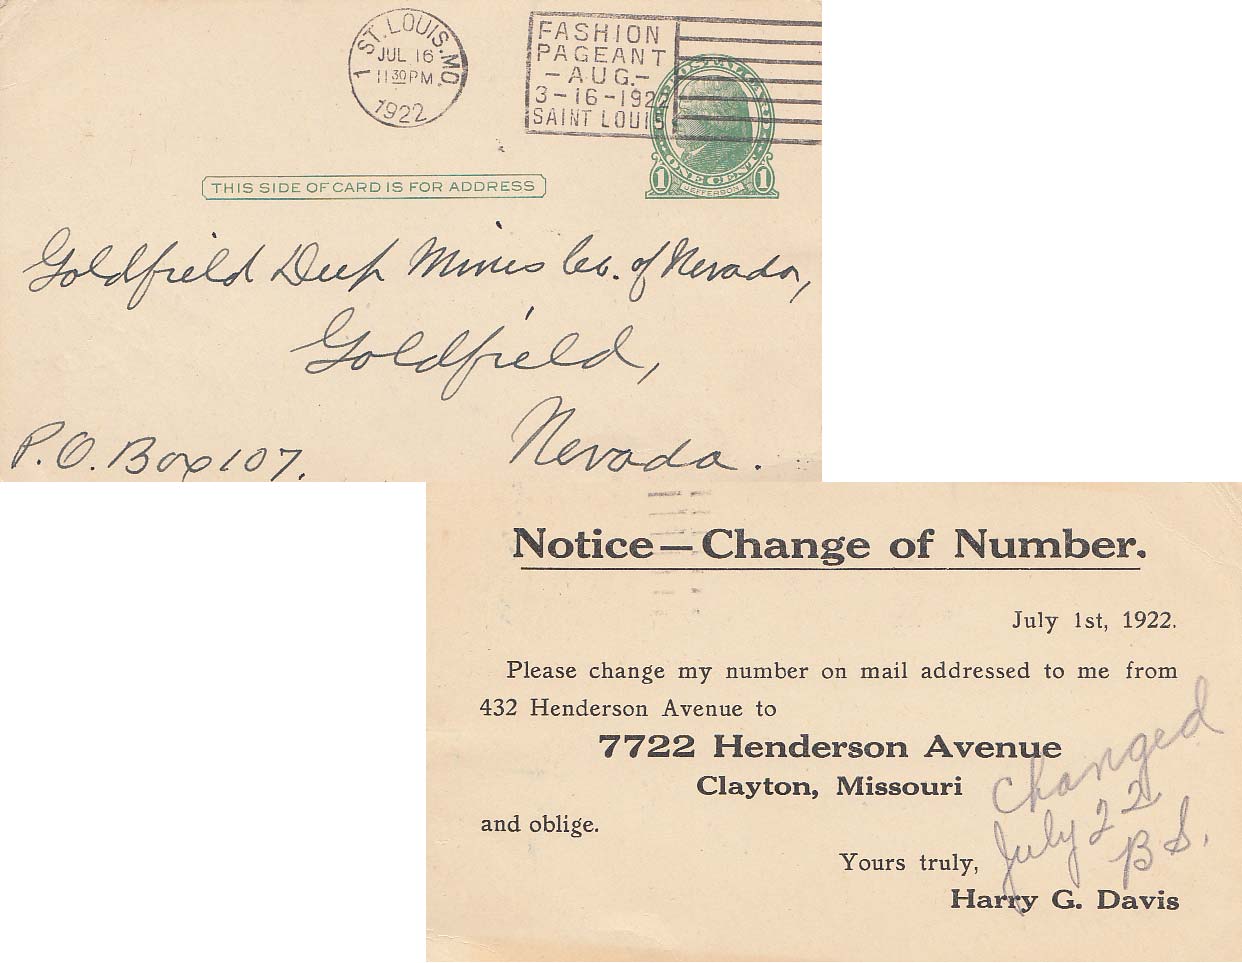 ST. LOUIS. MO.
1
JUL 16
11 30 PM
1922
FASHION
PAGEANT
- AUG. -
3-16-1922
SAINT LOUIS
THIS SIDE OF CARD IS FOR ADDRESS
1 ONE CENT 1
JEFFERSON
Goldfield Deep Mines Co. of Nevada,
Goldfield,
Nevada.
P.O. Box 107.
Notice—Change of Number.
July 1st, 1922.
Please change my number on mail addressed to me from
432 Henderson Avenue to
7722 Henderson Avenue
Clayton, Missouri
and oblige.
Yours truly,
Harry G. Davis
Changed
July 22
BS.